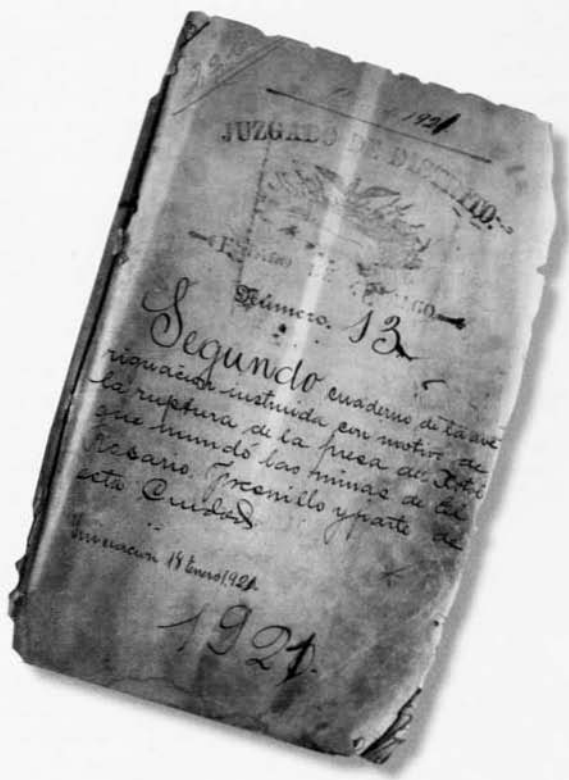 1921
JUZGADO DE DISTRITO.
ESTADO DE HIDALGO
Número. 13
Segundo cuaderno de la ave
riguación instruida con motivo de
la ruptura de la presa del
que inundó las minas de El
Rosario, Fresnillo y parte de
esta Ciudad
19 Enero/921.
1921.